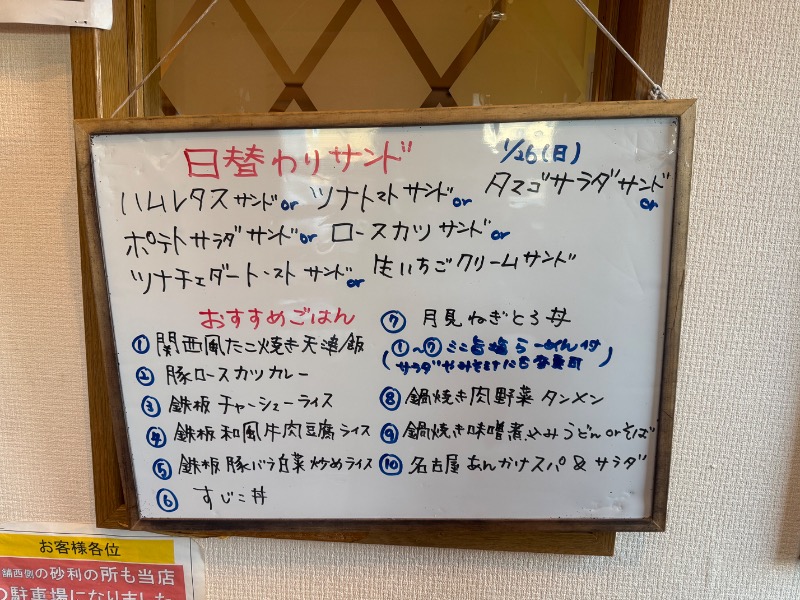 日替わりサンド 1/26(日)
ハムレタスサンドor ツナトマトサンドor タマゴサラダサンドor
ポテトサラダサンドor ロースカツサンドor
ツナチェダートーストサンドor 生いちごクリームサンド
おすすめごはん
① 関西風たこ焼き天津飯
② 豚ロースカツカレー
③ 鉄板チャーシューライス
④ 鉄板和風牛肉豆腐ライス
⑤ 鉄板豚バラ白菜炒めライス
⑥ すじこ丼
⑦ 月見ねぎとろ丼
(①〜⑦ミニ旨塩らーめん付
サラダやみそ汁に変更可)
⑧ 鍋焼き肉野菜タンメン
⑨ 鍋焼き味噌煮込みうどんorそば
⑩ 名古屋あんかけスパ&サラダ
お客様各位
舗西側の砂利の所も当店
の駐車場になりました